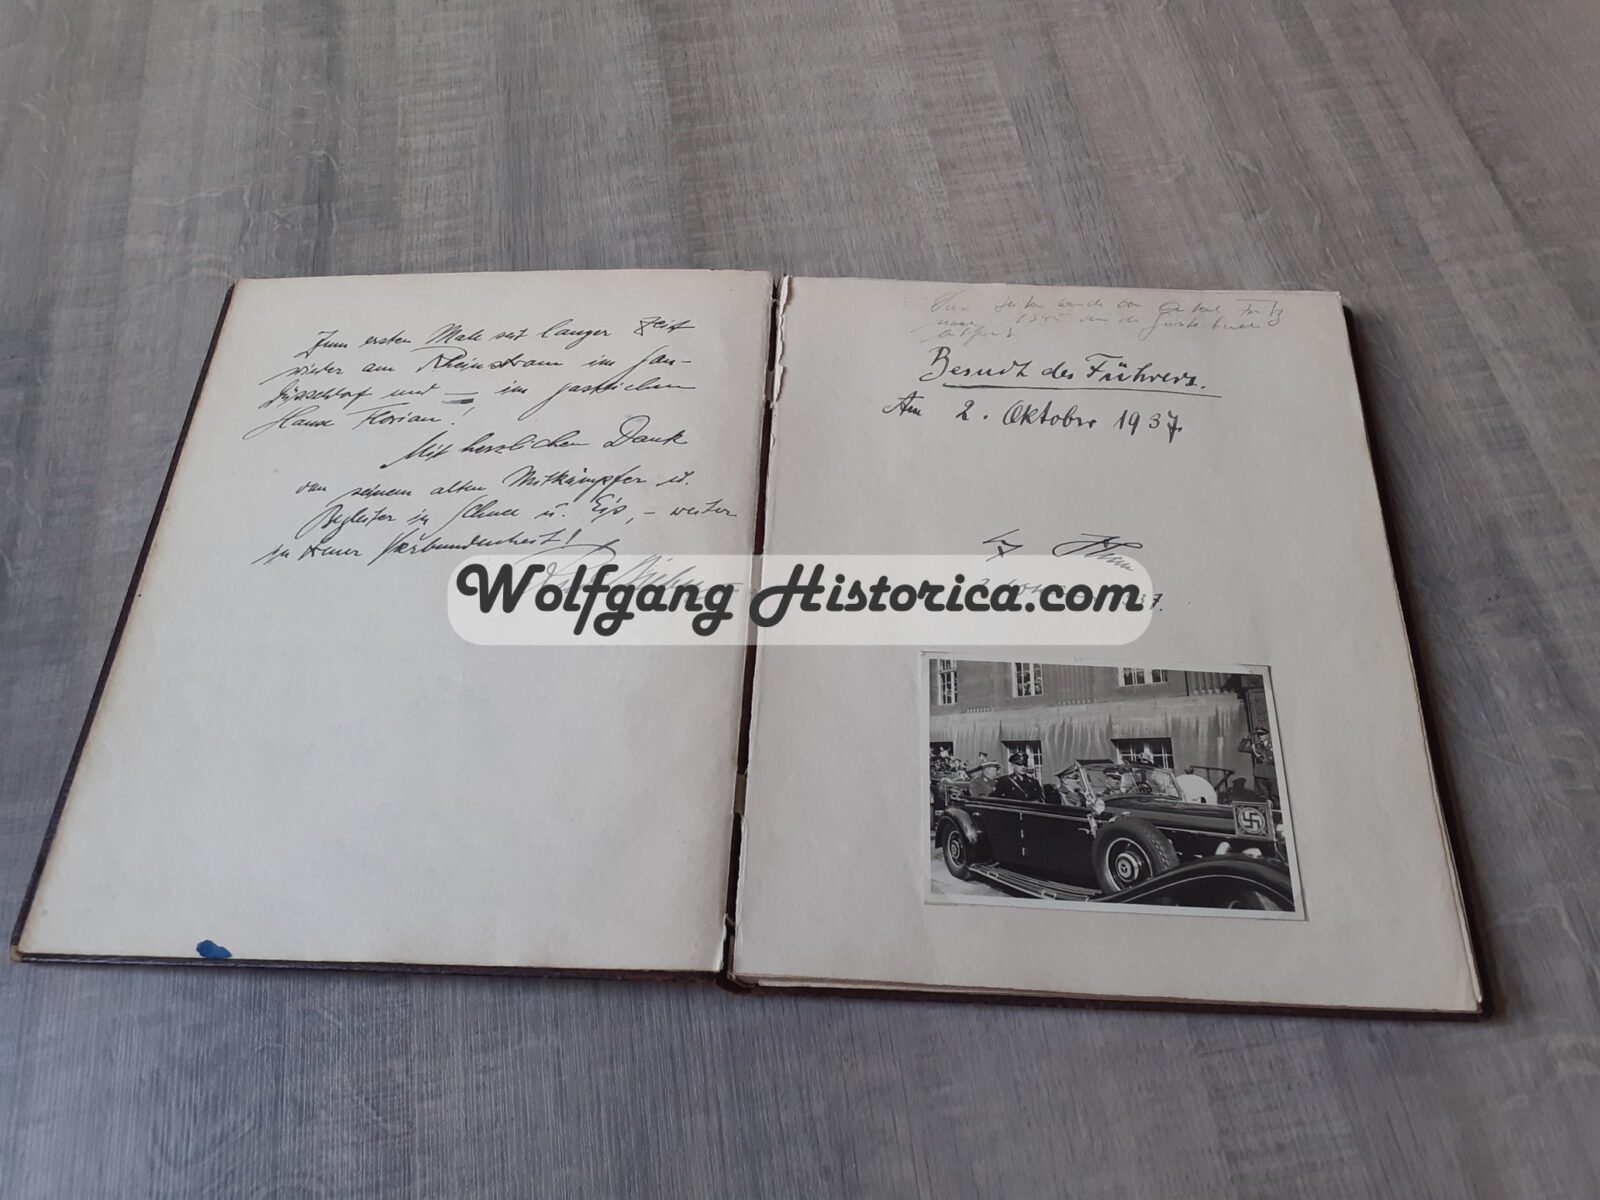 Zum ersten Male seit langer Zeit
wieder am Rheinstrom im Gau-
Düsseldorf und — im gastlichen
Hause Florian!
Mit herzlichem Dank
von seinem alten Mitkämpfer u.
Begleiter in Schnee u. Eis, – weiter
in treuer Verbundenheit!
1945
Besuch des Führers.
Am 2. Oktober 1937.
Wolfgang Historica.com